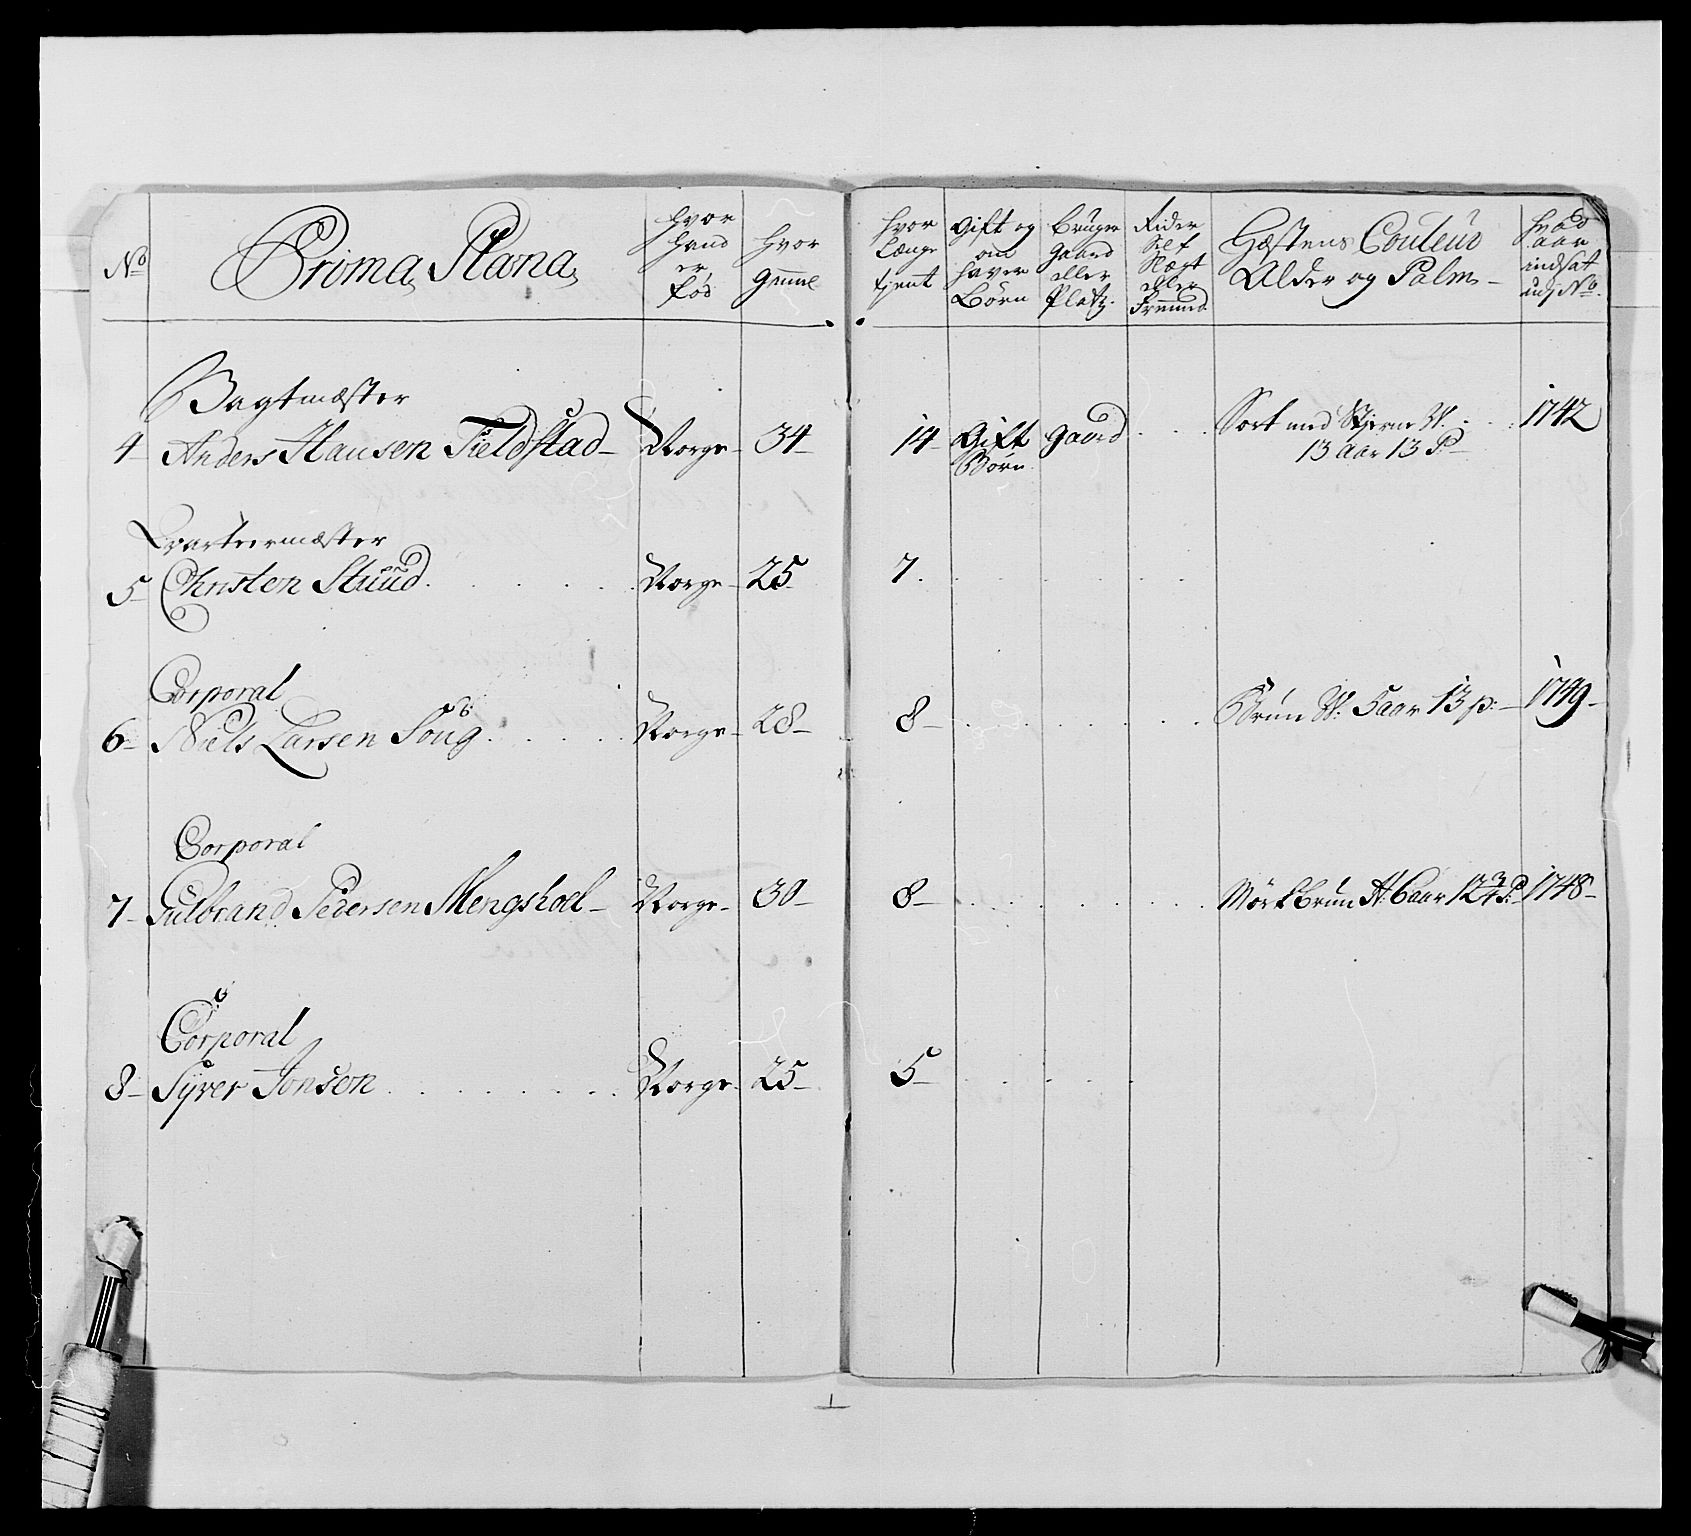 No
Prima Plana
hvor
hand
er
fød
hvor
gammel
hvor
længe
tient
Gift og
om
haver
Børn
bruger
gaard
eller
Platz.
Rider
Self
Nægt
eller
fremmd.
Hæstens Couleur
Alder og Palm -
hvad
aar
indsat
udj No.
Vagtmæster
4- Anders Hansen Fieldstad - Norge - 34 - 14 - Gift gaard Sort med Stierne V. 1742
Børn 13 aar 13 P -
Qvarteermæster
5- Christen Stuud Norge - 25 7.
Corporal
6- Niels Larsen Soug Norge - 28 - 8 - Brun V: 5 aar 13 p: - 1749 -
Corporal
7- Gulbrand Pedersen Mengshoel - Norge - 30 - 8 - Mørkbrun H: 6 aar 12 3/4 P: 1748 -
Corporal
8- Syver Jonsen Norge - 25 - 5 -
1